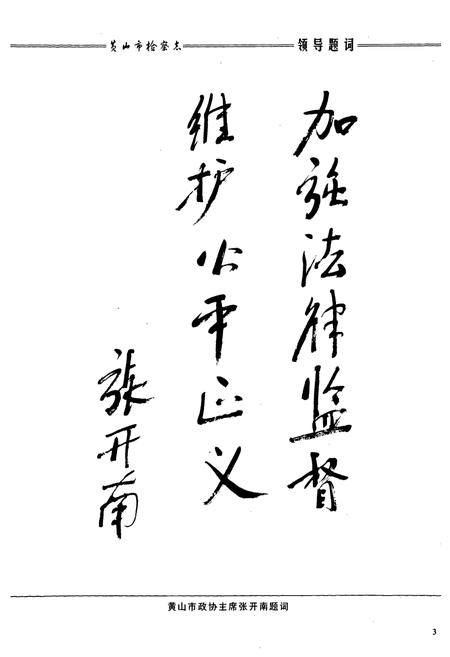 黄山市检察志
领导题词
加强法律监督
维护公平正义
張开南
黄山市政协主席张开南题词
3